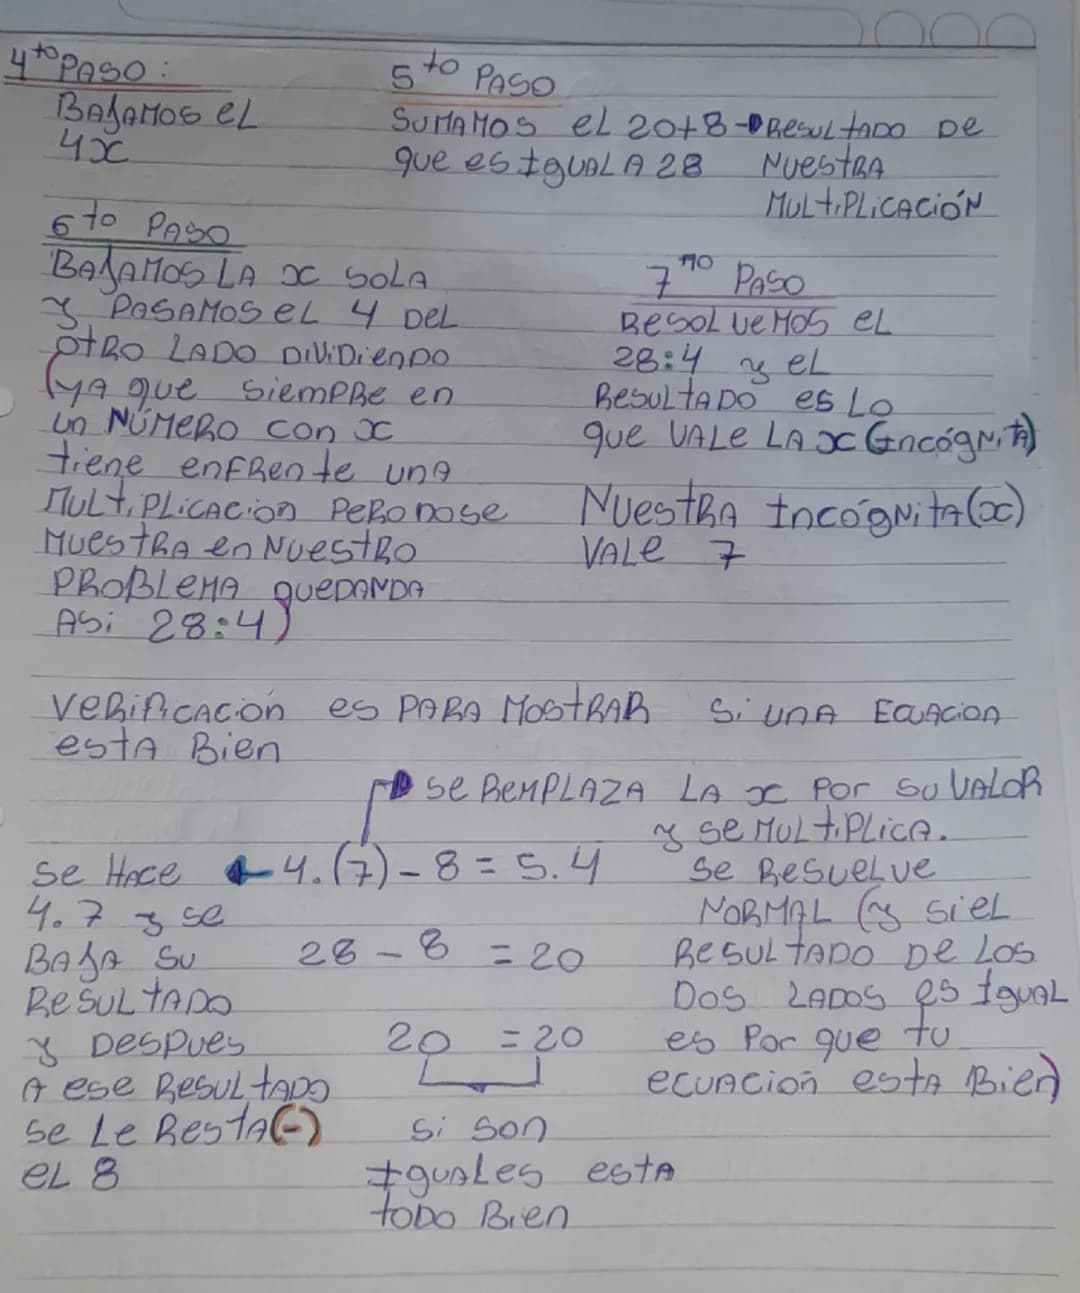 4to PASO:
BAJAMOS EL
4x
5to PASO
SUMAMOS EL 20+8 → RESULTADO DE
que es IGUAL A 28 NUESTRA
MULTIPLICACIÓN
6to PASO
BAJAMOS LA x SOLA
y PASAMOS EL 4 DEL
OTRO LADO DIVIDIENDO
(YA que siempre en
un NÚMERO CON x
tiene enfrente UNA
MULTIPLICACION PERO NO SE
MUESTRA en NUESTRO
PROBLEMA QUEDANDA
ASi 28:4)
7mo PASO
RESOLVEMOS EL
28:4 y EL
RESULTADO es LO
que VALE LA x (INCÓGNITA)
NUESTRA INCÓGNITA (x)
VALE 7
VERIFICACIÓN es PARA MOSTRAR Si UNA ECUACION
ESTA Bien
→ Se REMPLAZA LA x POR SU VALOR
y Se MULTIPLICA.
Se Hace ← 4.(7) - 8 = 5.4
4.7 y se
BAJA SU
RESULTADO
y DESPUES
A ese RESULTADO
Se Le RESTA (-)
EL 8
28 - 8 = 20
20 = 20
Si Son
IGUALES ESTA
TODO Bien
Se RESUELVE
NORMAL (y Si EL
RESULTADO DE LOS
DOS LADOS es IGUAL
es Por que tu
ecuación esta Bien)